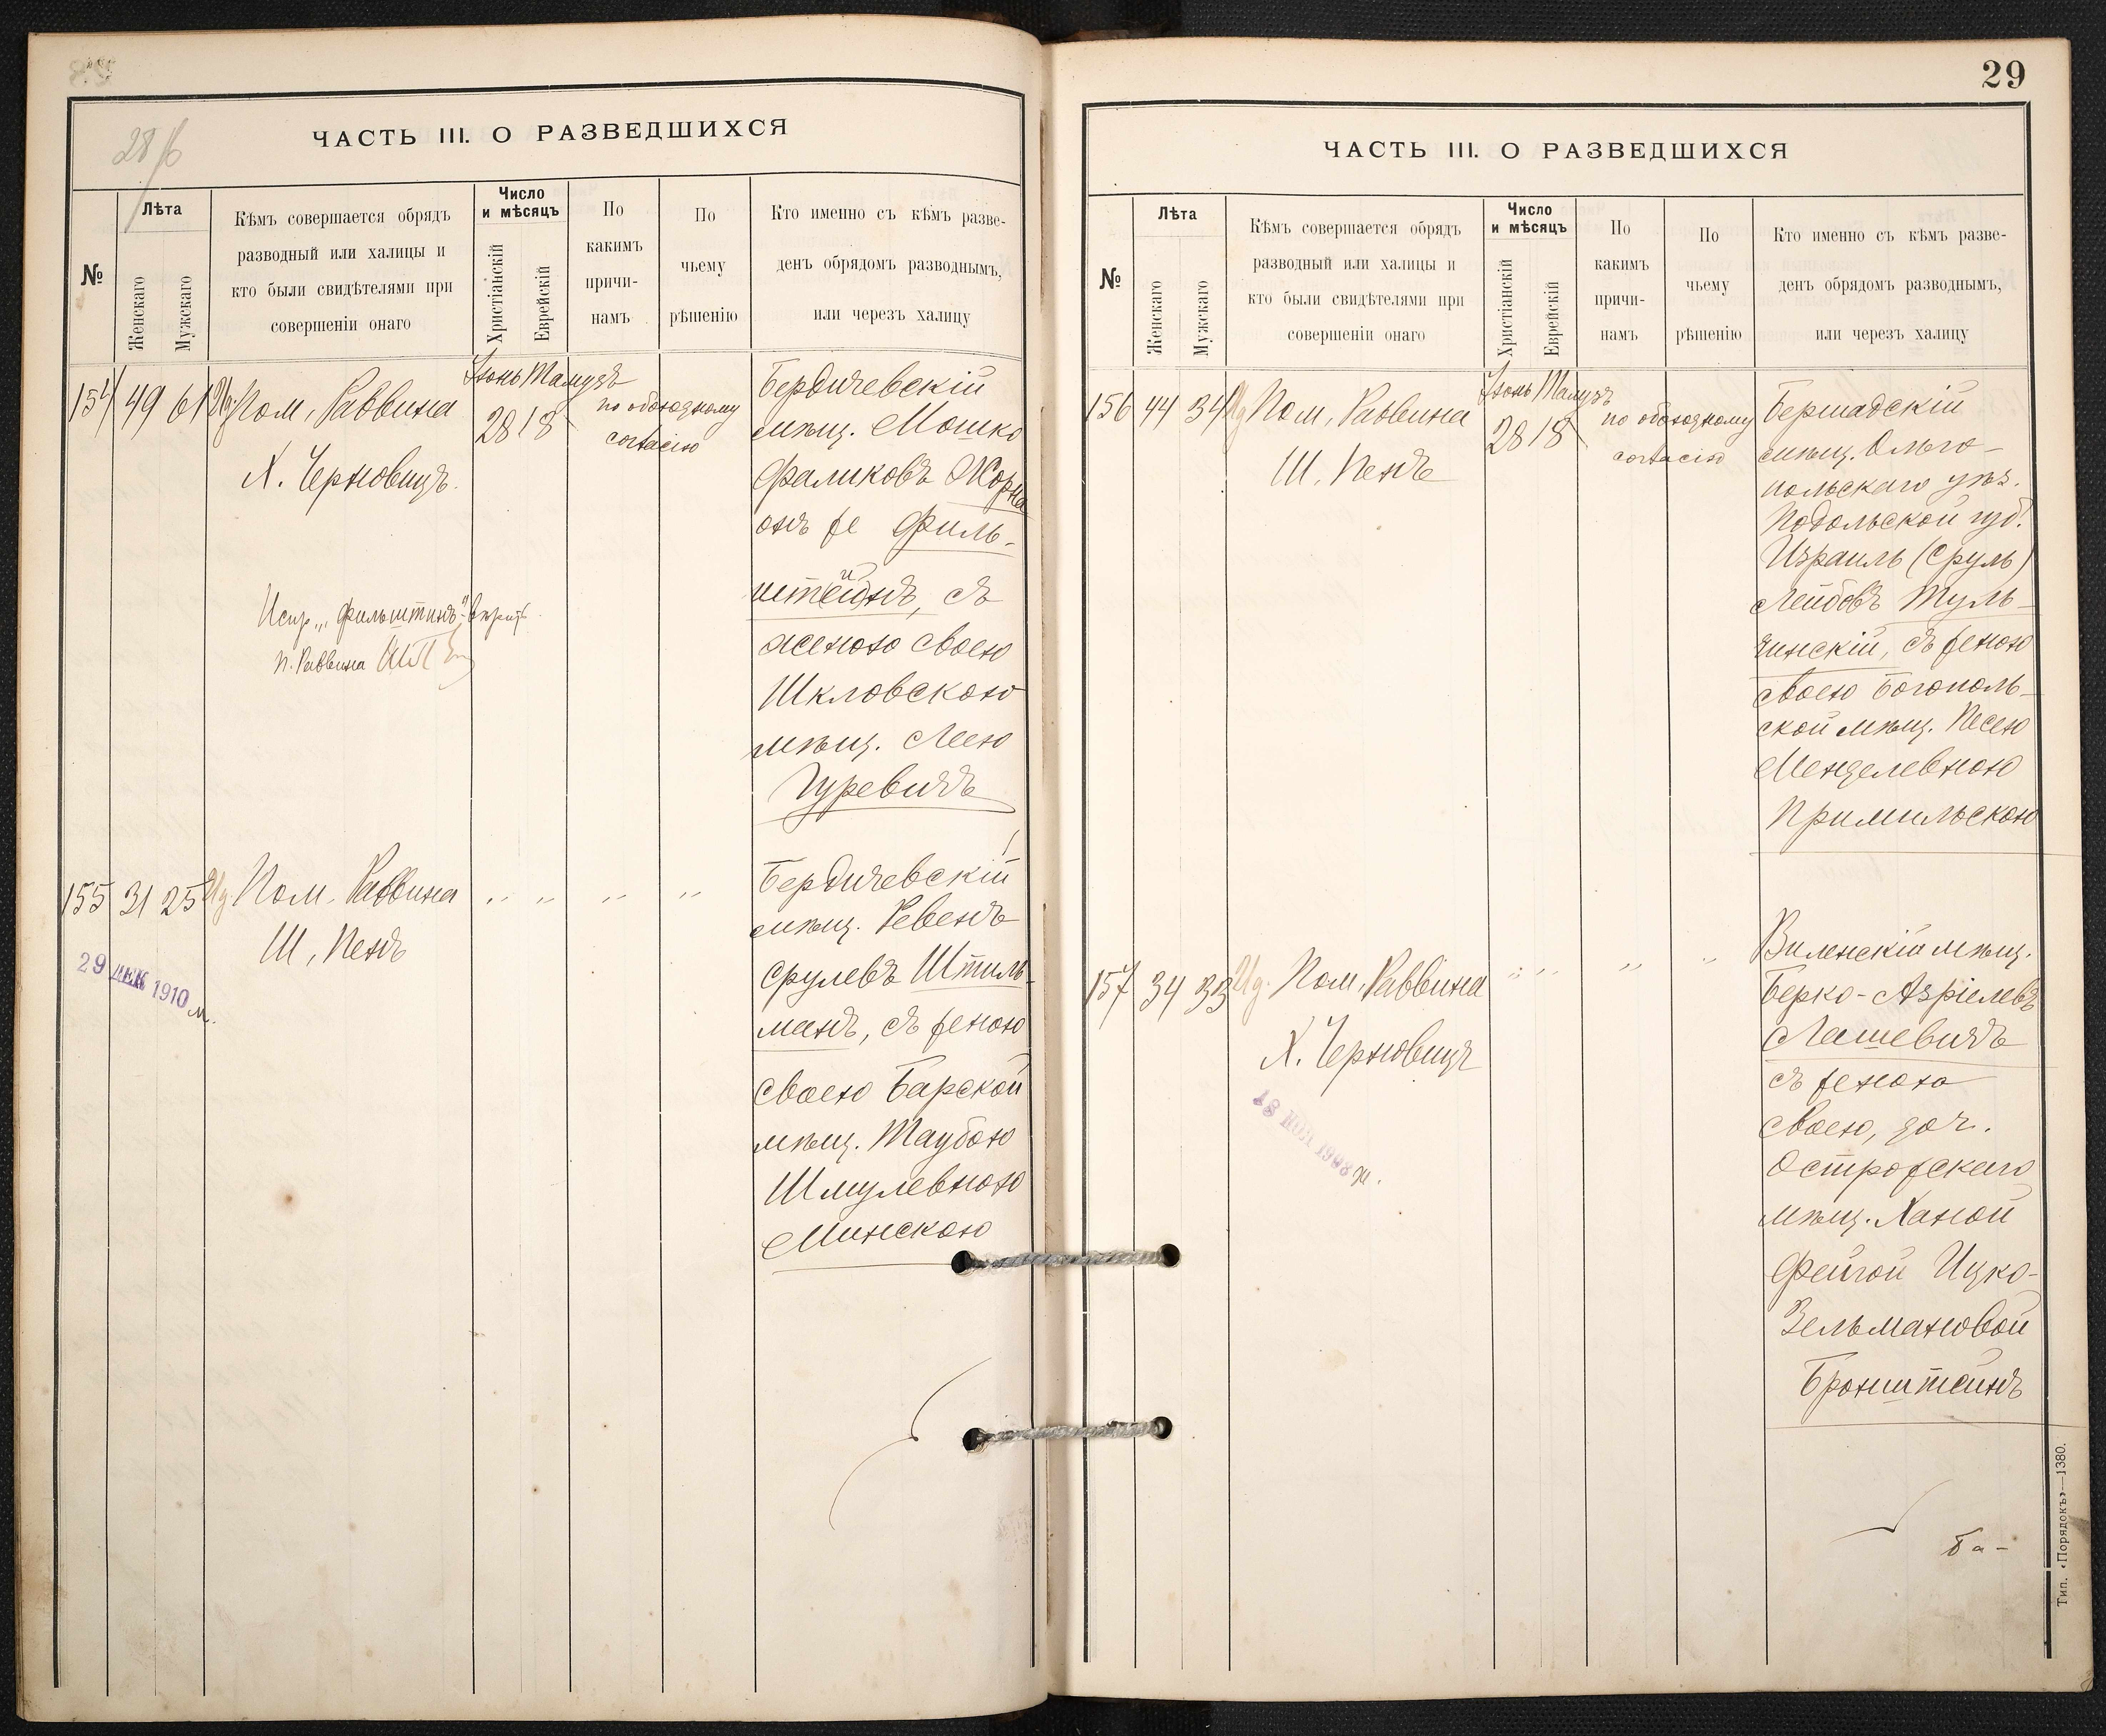 28
ЧАСТЬ III. О РАЗВЕДШИХСЯ
№
Лѣта
Женскаго
Мужскаго
Кѣмъ совершается обрядъ
разводный или халицы и
кто были свидѣтелями при
совершеніи онаго
Число
и мѣсяцъ
Христіанскій
Еврейскій
По
какимъ
причи-
намъ
По
чьему
рѣшенію
Кто именно съ кѣмъ разве-
денъ обрядомъ разводнымъ,
или черезъ халицу
154 49 61 Пом. Раввина
Х. Черновицъ.
Іюнь Тамузъ
28 18
по обоюдному
согласію
Бердичевскій
мѣщ. Мошко
Фаликовъ Жорна
онъ же Филь-
штейнъ, съ
и
женою своею
Шкловскою
мѣщ. Леею
Гуревичъ
Испр. „Фильштинъ" вѣрно
п. Раввина
155 31 25 Ид. Пом. Раввина
Ш. Пенъ
29 ДЕК 1910
м.
" " " "
Бердичевскій
мѣщ. Ревенъ
Срулевъ Штиль-
манъ, съ женою
своею Барской
мѣщ. Таубою
Шмулевною
Минскою
29
ЧАСТЬ III. О РАЗВЕДШИХСЯ
№
Лѣта
Женскаго
Мужскаго
Кѣмъ совершается обрядъ
разводный или халицы и
кто были свидѣтелями при
совершеніи онаго
Число
и мѣсяцъ
Христіанскій
Еврейскій
По
какимъ
причи-
намъ
По
чьему
рѣшенію
Кто именно съ кѣмъ разве-
денъ обрядомъ разводнымъ,
или черезъ халицу
156 44 34 Ид Пом. Раввина
Ш. Пенъ
Іюнь Тамузъ
28 18
по обоюдному
согласію
Бершадскій
мѣщ. Ольго-
польскаго уѣз.
Подольской губ.
Израиль (Сруль)
Лейбовъ Туль-
чинскій, съ женою
своею Богополь-
ской мѣщ. Песею
Менделевною
Примильскою
157 34 33 Ид. Пом. Раввина
Х. Черновицъ
18 НОЯ 1908
" " " "
Виленскій мѣщ.
Берко-Азріелевъ
Лашевичъ
съ женою
своею, доч.
Острожскаго
мѣщ. Ханой
Фейгой Ицко-
Зельмановой
Бронштейнъ
Тип. «Порядокъ»—1380.